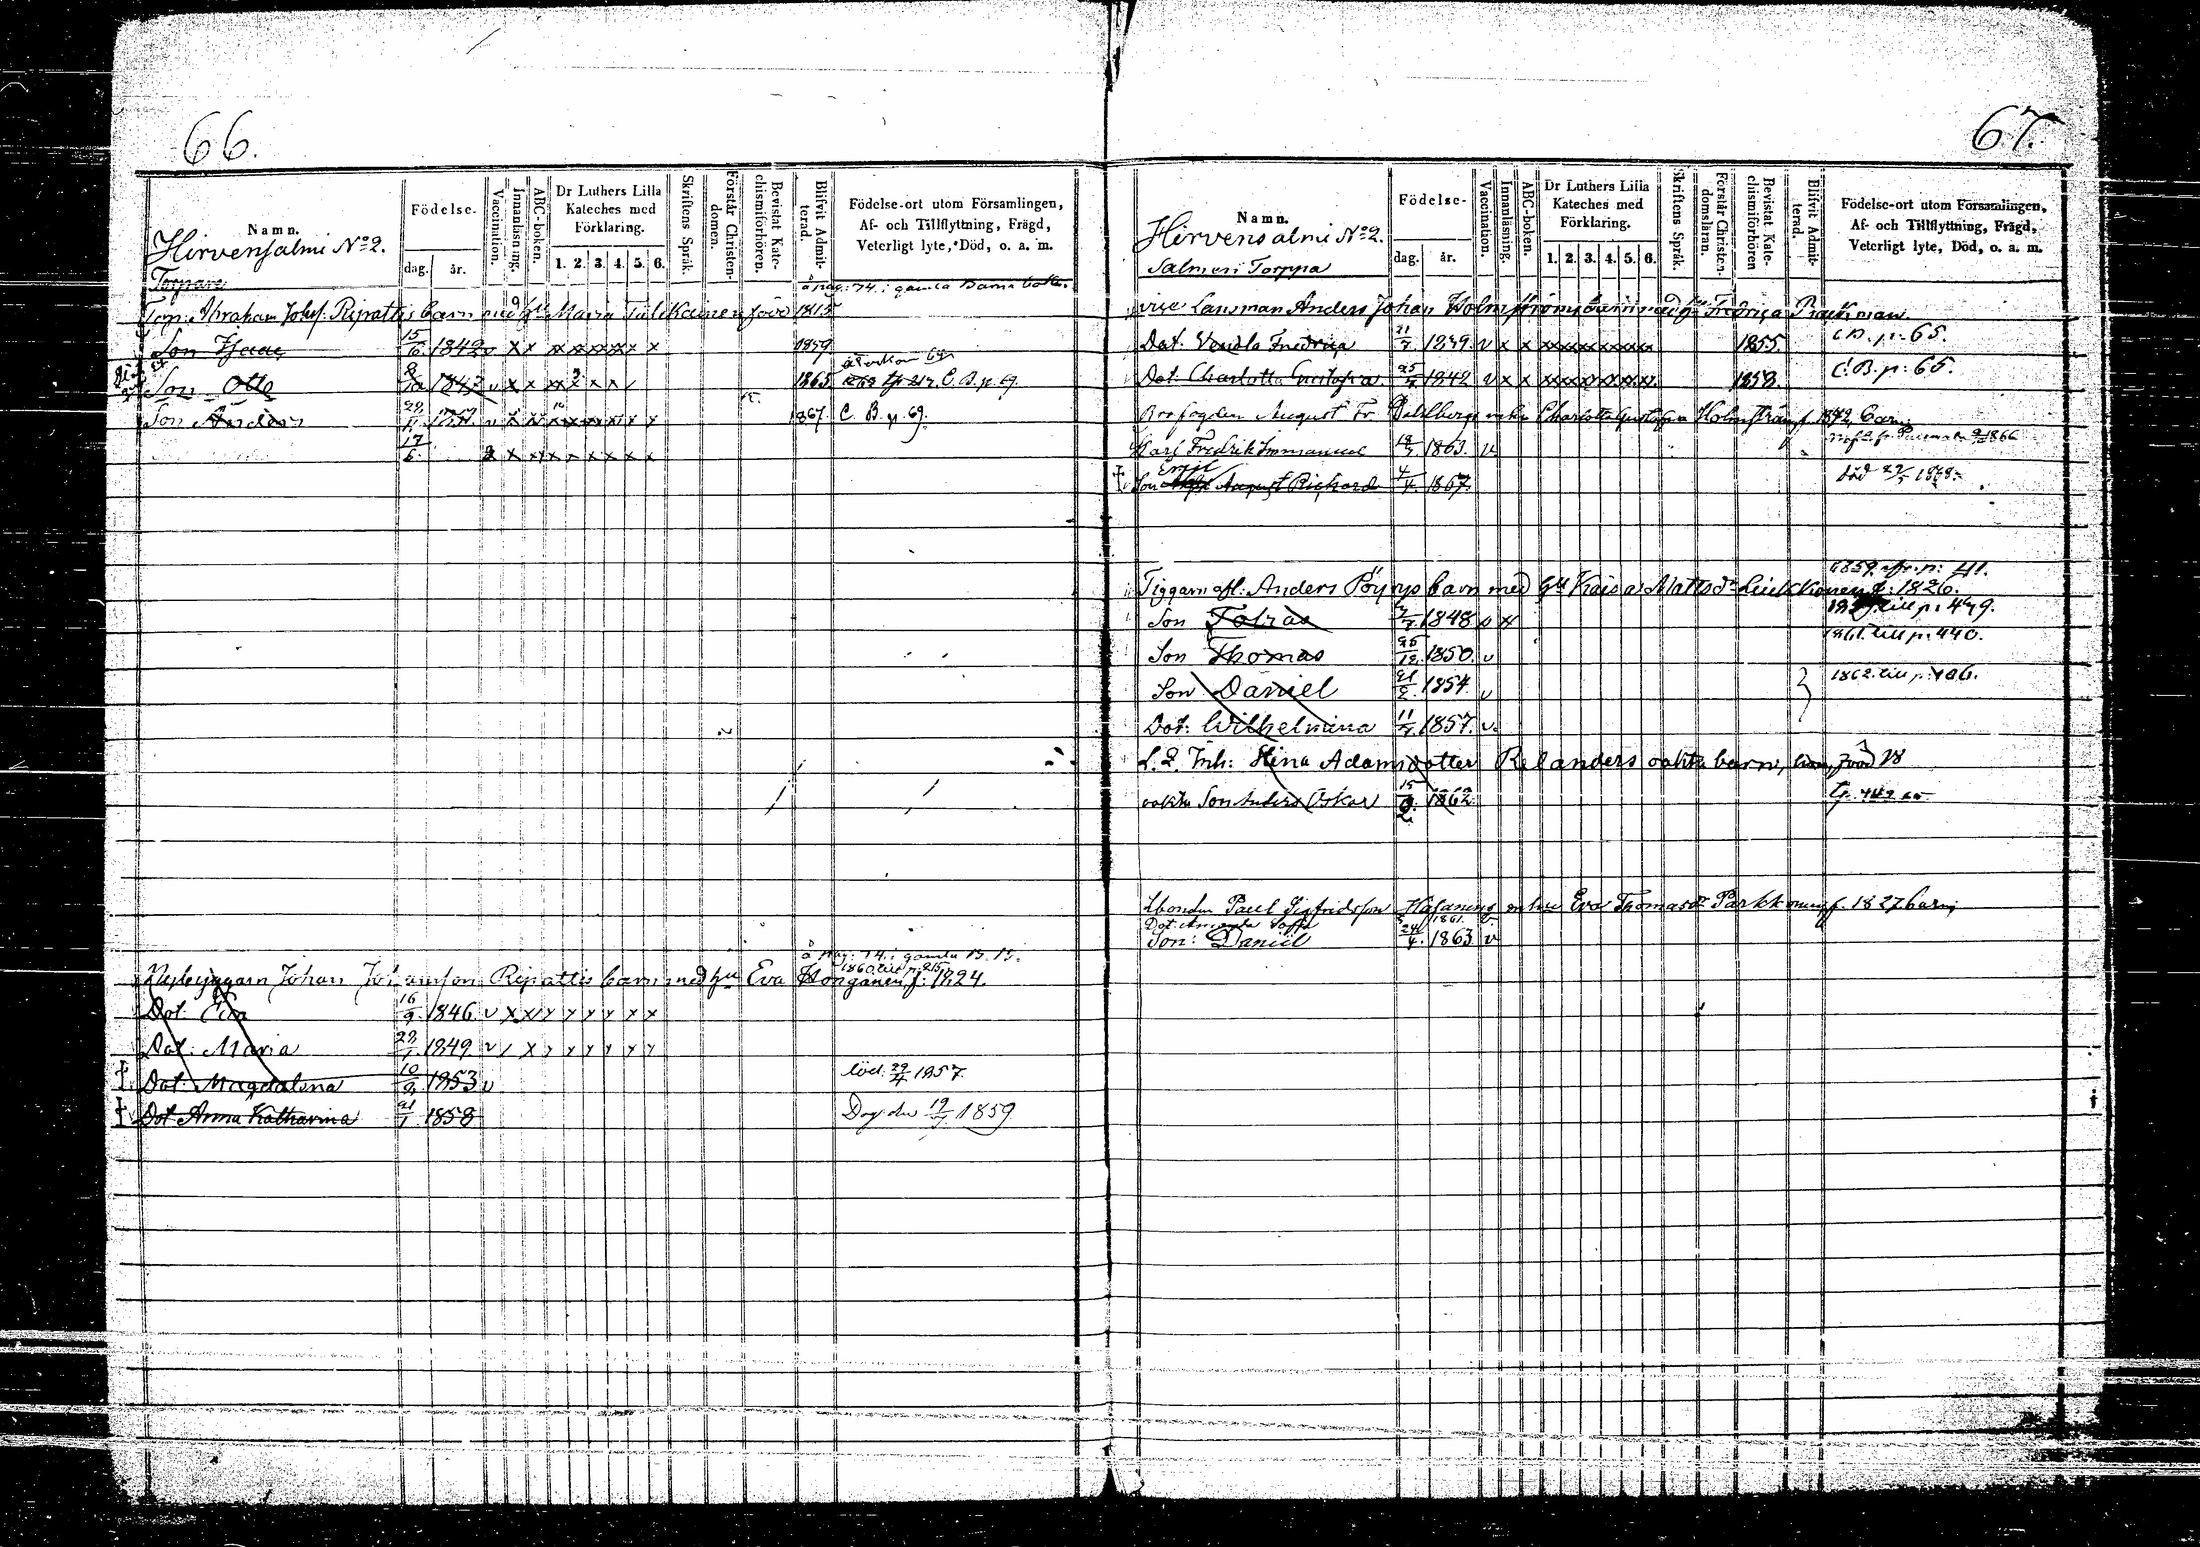 66.
Namn.
Hirvensalmi No 2.
Torpare
Födelse-
dag. år.
Vaccination.
Innanläsning.
ABC-boken.
Dr Luthers Lilla Kateches med Förklaring.
1. 2. 3. 4. 5. 6.
Skriftens Språk.
Förstår Christendomen.
Bevistat Katechismiförhören.
Blifvit Admitterad.
Födelse-ort utom Församlingen, Af- och Tillflyttning, Frägd, Veterligt lyte, Död, o. a. m.
å pag: 74. i gamla Barna boken.
Torp: Abraham Johsf: Ripattis barn med hu Maria Tulikainen född 1815
Son Isaac 15/10 1842 v x x x x x x x x 1859
Son Otto 1843 v x x x x x x 1865 C. B. p. 69.
Son Anders 1867. C. B. p 69.
17/6. x x x x x x x x
å pag: 74. i gamla B. B.
1860 till p. 215
Nybyggarn Johan Johansson Ripattis barn med hu Eva Honganen, f: 1824.
Dot. Eva 16/9. 1846 v x x x x x x x x
Dot: Maria 29/1. 1849 v x
Dot: Magdalena 10/9. 1853 v död. 29/4 1857.
Dot Anna Katharina 21/1 1858 Dog den 19/7 1859
67.
Namn.
Hirvensalmi No 2.
Salmen Torppa
Födelse-
dag. år.
Vaccination.
Innanläsning.
ABC-boken.
Dr Luthers Lilla Kateches med Förklaring.
1. 2. 3. 4. 5. 6.
Skriftens Språk.
Förstår Christendomsläran.
Bevistat Katechismiförhören
Blifvit Admitterad.
Födelse-ort utom Församlingen, Af- och Tillflyttning, Frägd, Veterligt lyte, Död, o. a. m.
vice Länsman Anders Johan Holmströms barn med hu Fredrica
Dot. Vendla Fredrica 21/7. 1839. v x x x x x x x x 1855. C B. p: 65.
Dot. Charlotta Gustafva 1842 v x x x x x x x x 1858. C. B. p: 65.
Brofogden August Fr. Dahlbergs Charlotta Gustafva Holmström f. 1842, barn
Karl Fredrik Immanuel 1863. v
Son Emil August Richard 4/4. 1867. död 22/5 1868.
1859 fr. p: 41.
Tiggarn afl: Anders Pöyrys barn med hu Kaisa Mattsdr f: 1826.
Son Tobias 1848 v x till p: 449.
Son Thomas 25/12. 1850. v 1861. till p: 440.
Son Daniel 21/2. 1854. v 1862. till p: 106.
Dot: Wilhelmina 11/4. 1857. v.
L. Q. Inh: Stina Adamsdotter Relanders oäkta barn,
oäkta Son Anders Oskar 15/2. 1862.
Lbonden Paul Sigfridsson Eva Thomasdr Parkkonen f. 1827 barn,
Dot: Amanda Sofia 1861. v
Son: Daniel 24/4. 1863 v